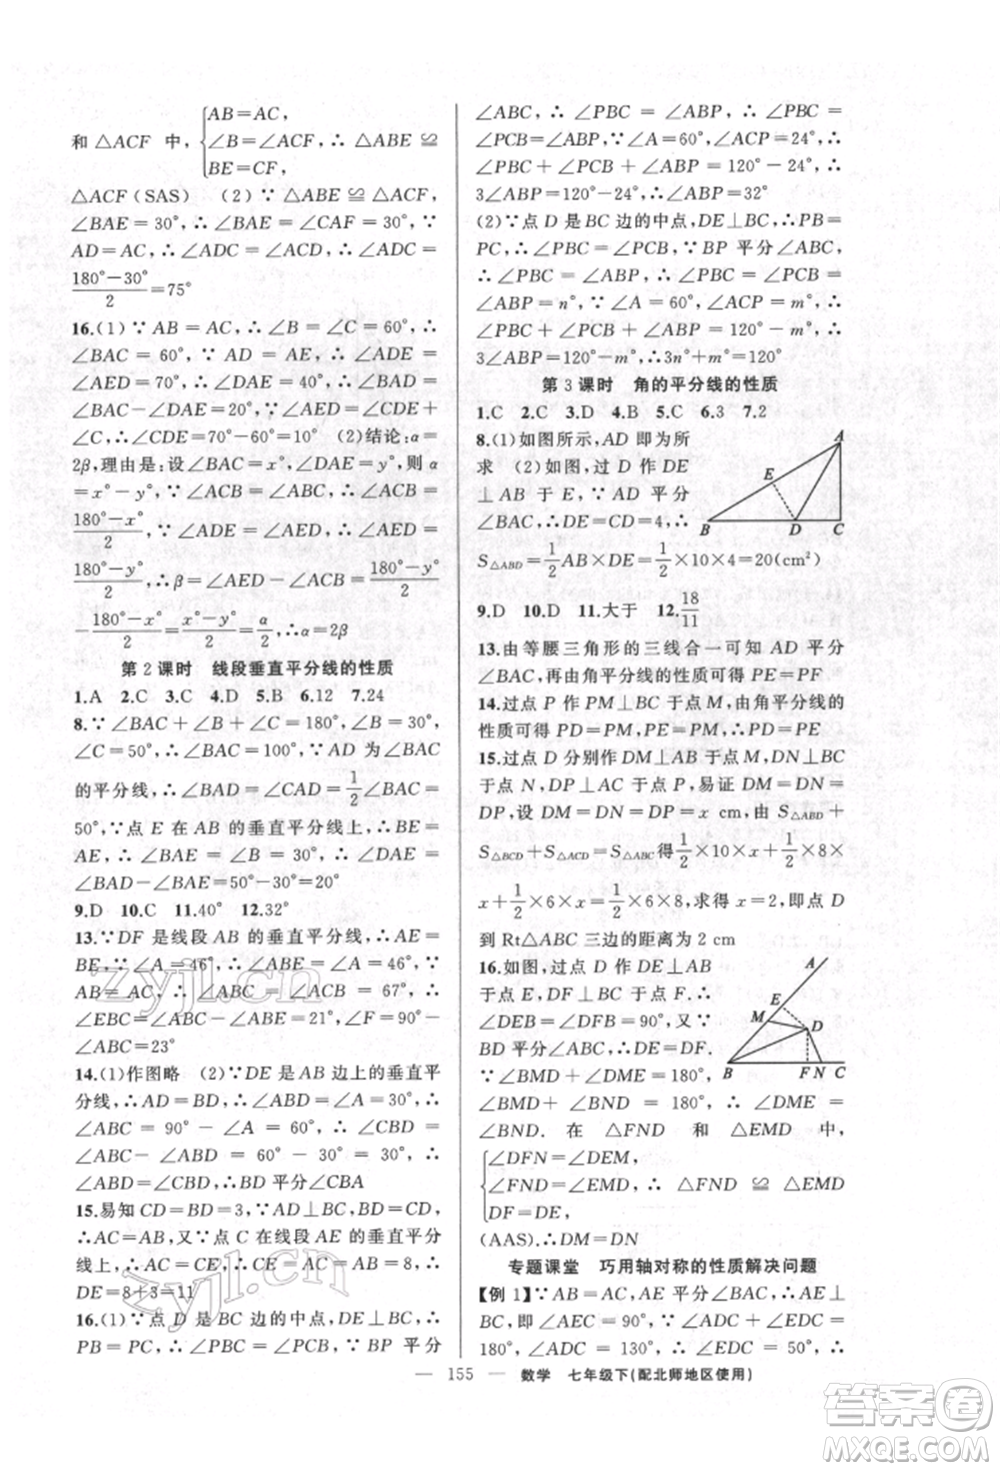 和 △ACF 中, { AB=AC, ∠B=∠C, BE=CF, ∴ △ABE ≌
△ACF(SAS) (2) ∵ △ABE ≌ △ACF, ∴
∠BAE = 30°, ∴ ∠BAE = ∠CAF = 30°, ∵
AD = AC, ∴ ∠ADC = ∠ACD, ∴ ∠ADC =
(180°−30°)/2 = 75°
16.(1) ∵ AB = AC, ∴ ∠B = ∠C = 60°, ∴
∠BAC = 60°, ∵ AD = AE, ∴ ∠AED =
∠ADE = 70°, ∴ ∠DAE = 40°, ∴ ∠BAD =
∠BAC−∠DAE=20°, ∵ ∠AED = ∠CDE +
∠C, ∴ ∠CDE=70°−60°=10° (2)结论:α=
2β,理由是:设∠BAC=x°,∠DAE=y°,则 α
= x° − y°, ∵ ∠ACB = ∠ABC, ∴ ∠ACB =
(180°−x°)/2, ∵ ∠ADE = ∠AED, ∴ ∠AED =
(180°−y°)/2, ∴β=∠AED−∠ACB=(180°−y°)/2
−(180°−x°)/2=(x°−y°)/2=α/2,∴α=2β
第 2 课时 线段垂直平分线的性质
1.A 2.C 3.C 4.D 5.B 6.12 7.24
8.∵∠BAC+∠B+∠C=180°,∠B=30°,
∠C=50°,∴∠BAC=100°,∵AD 为∠BAC
的平分线,∴∠BAD=∠CAD=1/2∠BAC=
50°,∵点 E 在 AB 的垂直平分线上,∴BE=
AE, ∴ ∠BAE = ∠B = 30°, ∴ ∠DAE =
∠BAD−∠BAE=50°−30°=20°
9.D 10.C 11.40° 12.32°
13.∵DF 是线段 AB 的垂直平分线,∴AE=
BE,∵∠A=46°,∴∠ABE=∠A=46°,∵
AB=AC,∴∠ABC=∠ACB=67°,∴
∠EBC=∠ABC−∠ABE=21°,∠F=90°−
∠ABC=23°
14.(1)作图略 (2)∵DE 是 AB 边上的垂直平
分线,∴AD=BD,∴∠ABD=∠A=30°,∴
∠ABC = 90° − ∠A = 60°, ∴ ∠CBD =
∠ABC − ∠ABD = 60° − 30° = 30°, ∴
∠ABD=∠CBD,∴BD 平分∠CBA
15.易知 CD=BD=8,∵AD⊥BC,BD=CD,
∴AB=AC,又∵点 C 在线段 AE 的垂直平分
线上, ∴ AC = CE, ∴ AB = AC = CE = 3, ∴
DE=8+3=11
16.(1) ∵ 点 D 是 BC 边的中点, DE⊥BD, ∴
PB = PC, ∴ ∠PBC = ∠PCB, ∵ BP 平分
∠ABC, ∴ ∠PBC = ∠ABP, ∴ ∠PBC =
∠PCB=∠ABP,∵∠A=60°,∠ACP=24°,∴
∠PBC + ∠PCB + ∠ABP = 120° − 24°, ∴
3∠ABP=120°−24°,∴∠ABP=32°
(2)∵点 D 是 BC 边的中点,DE⊥BD,∴PB=
PC,∴∠PBC=∠PCB,∵BP 平分∠ABC,
∴ ∠PBC = ∠ABP, ∴ ∠PBC = ∠PCB =
∠ABP = n°, ∵ ∠A = 60°, ∠ACP = m°, ∴
∠PBC + ∠PCB + ∠ABP = 120° − m°, ∴
3∠ABP=120°−m°,∴3n°+m°=120°
第 3 课时 角的平分线的性质
1.C 2.C 3.D 4.B 5.C 6.3 7.2
8.(1)如图所示,AD 即为所
求 (2)如图,过 D 作 DE
⊥ AB 于 E, ∵ AD 平分
∠BAC,∴DE=CD=4,∴
A
E
B D C
S△ABD=1/2AB×DE=1/2×10×4=20(cm²)
9.D 10.D 11.大于 12.18/11
13.由等腰三角形的三线合一可知 AD 平分
∠BAC,再由角平分线的性质可得 PE=PF
14.过点 P 作 PM⊥BC 于点 M,由角平分线的
性质可得 PD=PM,PE=PM,∴PD=PE
15.过点 D 分别作 DM⊥AB 于点 M,DN⊥BC
于点 N,DP⊥AC 于点 P,易证 DM=DN=
DP,设 DM=DN=DP=x cm,由 S△ABD+
S△BCD+S△ACD=S△ABC得1/2×10×x+1/2×8×
x+1/2×6×x=1/2×6×8,求得 x=2,即点 D
到 Rt△ABC 三边的距离为 2 cm
16.如图,过点 D 作 DE⊥AB
于点 E, DF⊥BC 于点 F, ∴
∠DEB=∠DFB=90°,又∵
BD 平分∠ABC,∴DE=DF.
∵ ∠BMD + ∠DME = 180°,
A
E
M D
B F N C
∠BMD + ∠BND = 180°, ∴ ∠DME =
∠BND. 在 △FND 和 △EMD 中,
{ ∠DFN=∠DEM,
∠FND = ∠EMD, ∴ △FND ≌ △EMD
DF=DE,
(AAS),∴DM=DN
专题课堂 巧用轴对称的性质解决问题
【例 1】∵AB=AC,AE 平分∠BAC,∴AE⊥
BC, 即 ∠AEC = 90°, ∴ ∠AED + ∠EDC =
180°, ∠ADC = 130°, ∴ ∠EDC = 50°, ∴
— 155 — 数学 七年级下(配北师地区使用)
zyjl.cn
答案卷
MXQE.COM